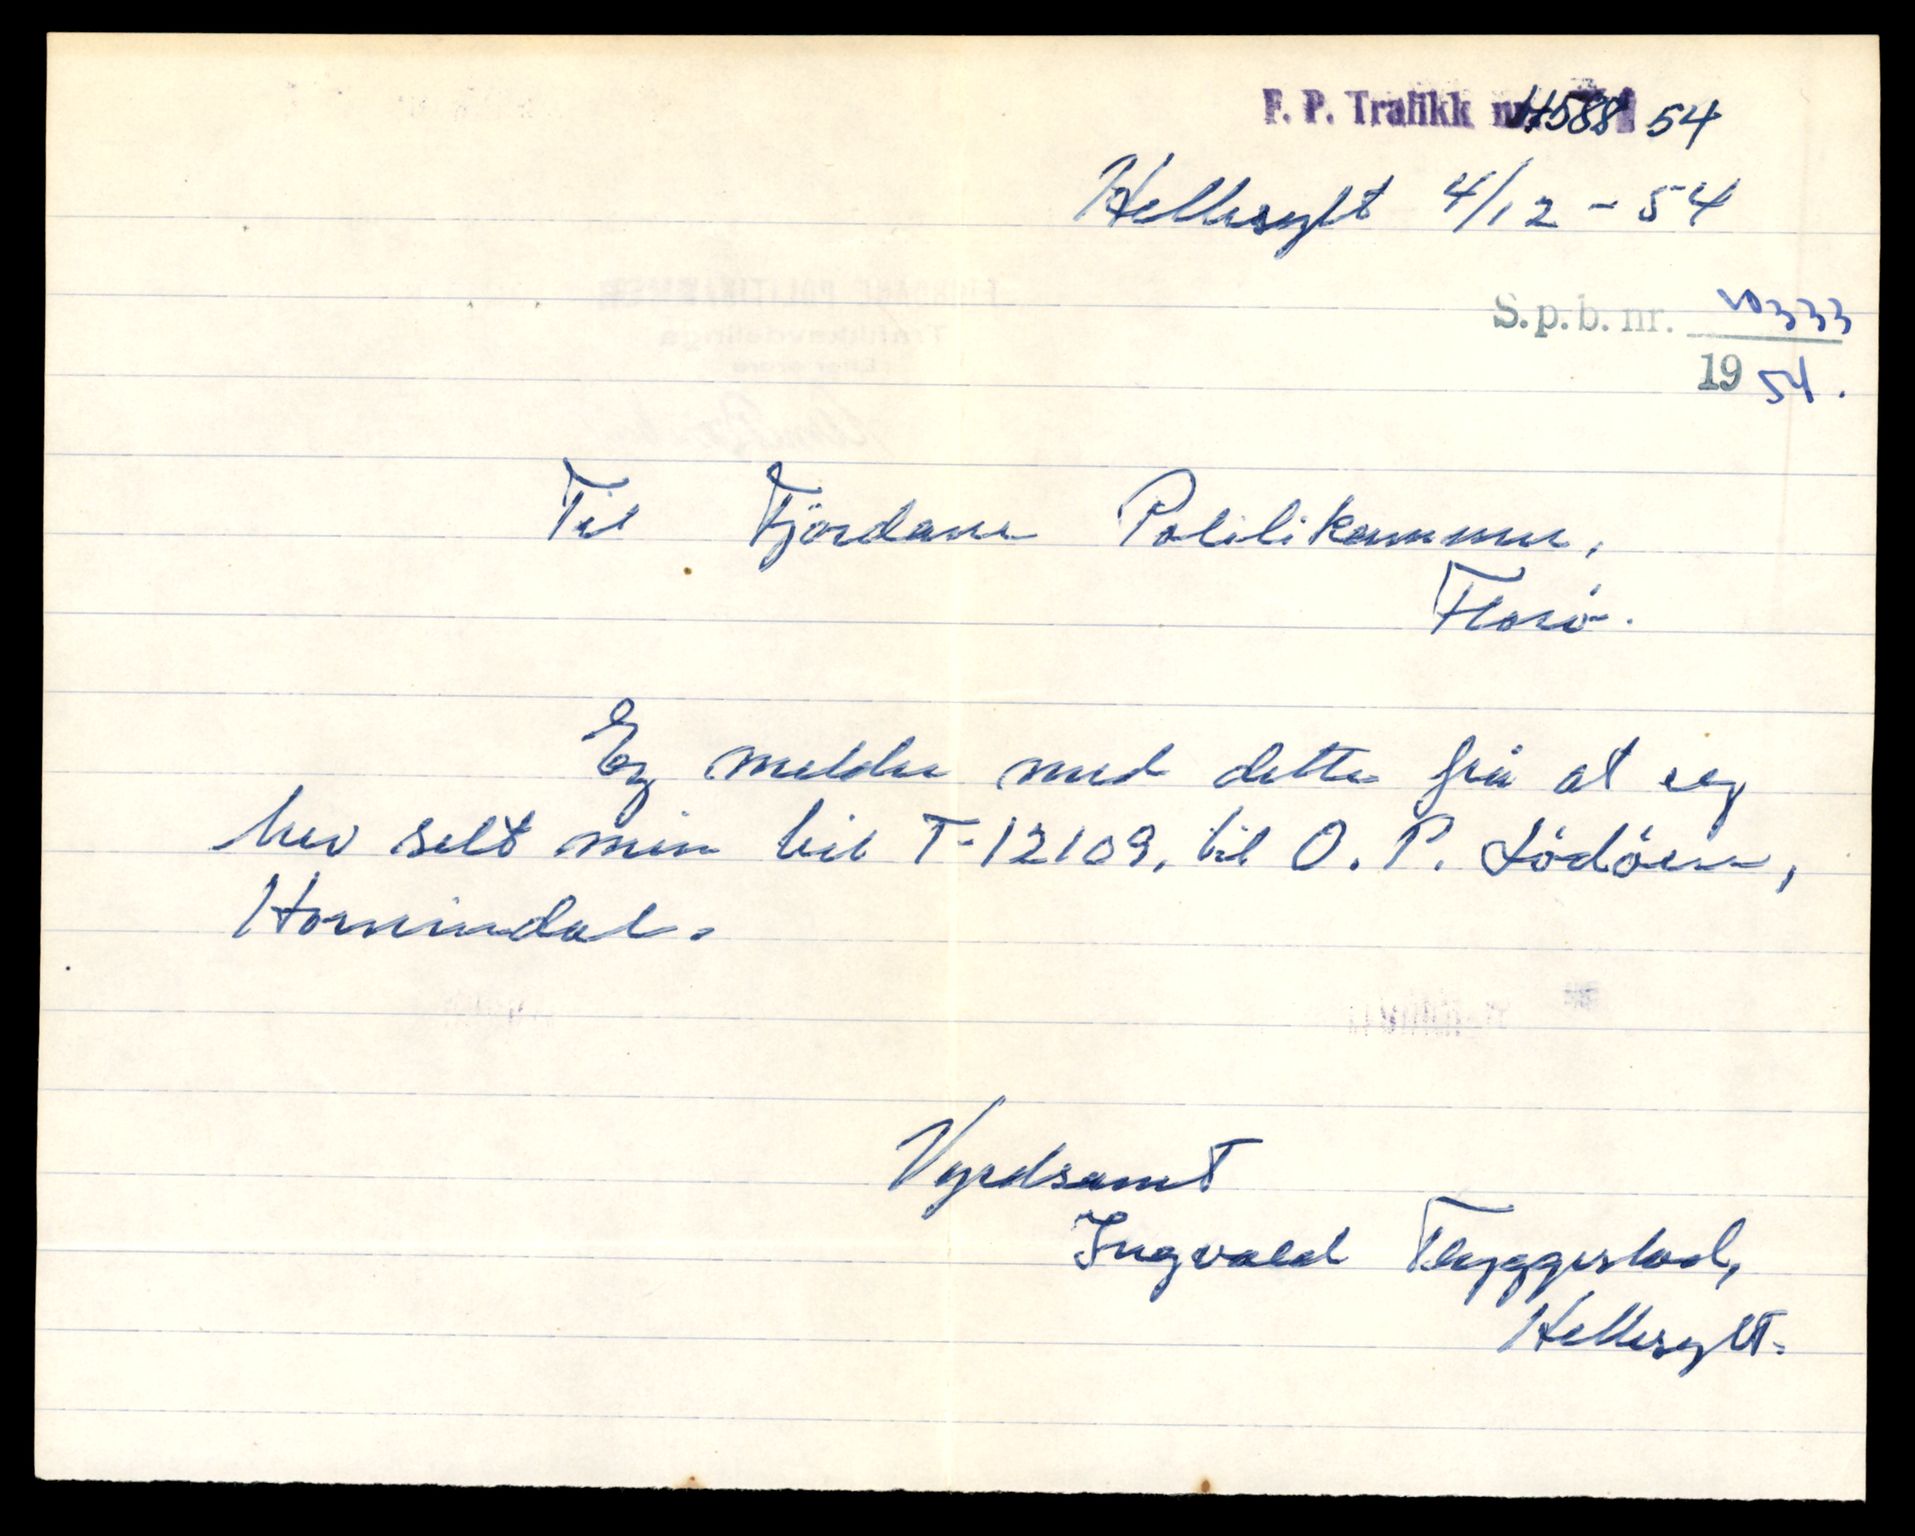 F. P. Trafikk nr. 54
Hellesylt 4/12 - 54
S. p. b. nr. 20333
19 54.
Til Fjordane Politikammer,
Florö.
Eg melder med dette frå at eg
hev selt min bil T-12109, til O. P. Lödöen,
Hornindal.
Vyrdsamt
Ingvald Flyggestad,
Hellesylt.